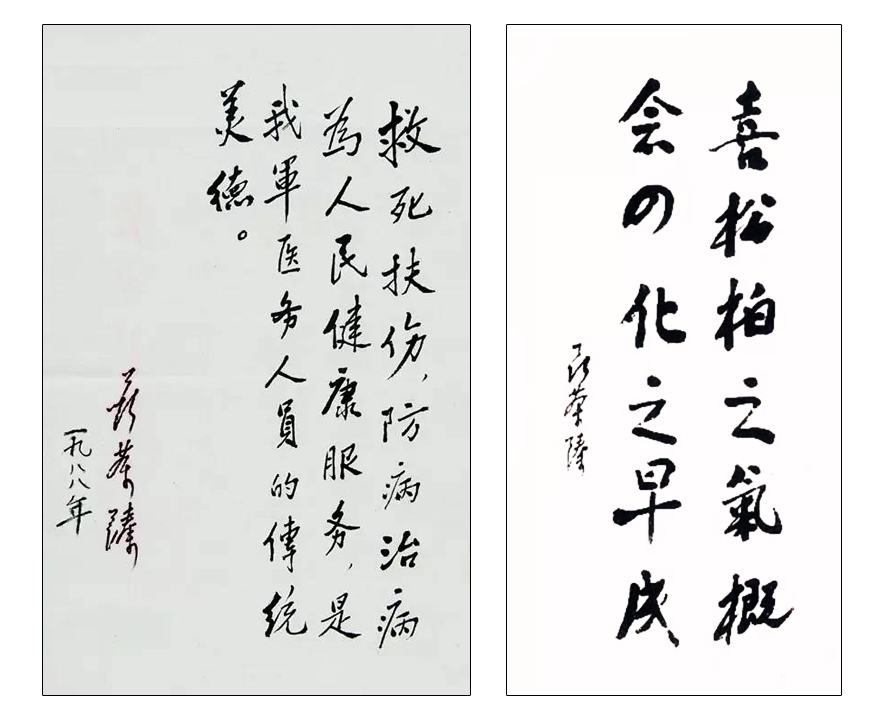 救死扶伤，防病治病
為人民健康服务，是
我軍医务人員的傳統
美德。
聂荣臻
一九八八年
喜松柏之氣概
念四化之早成
聂荣臻